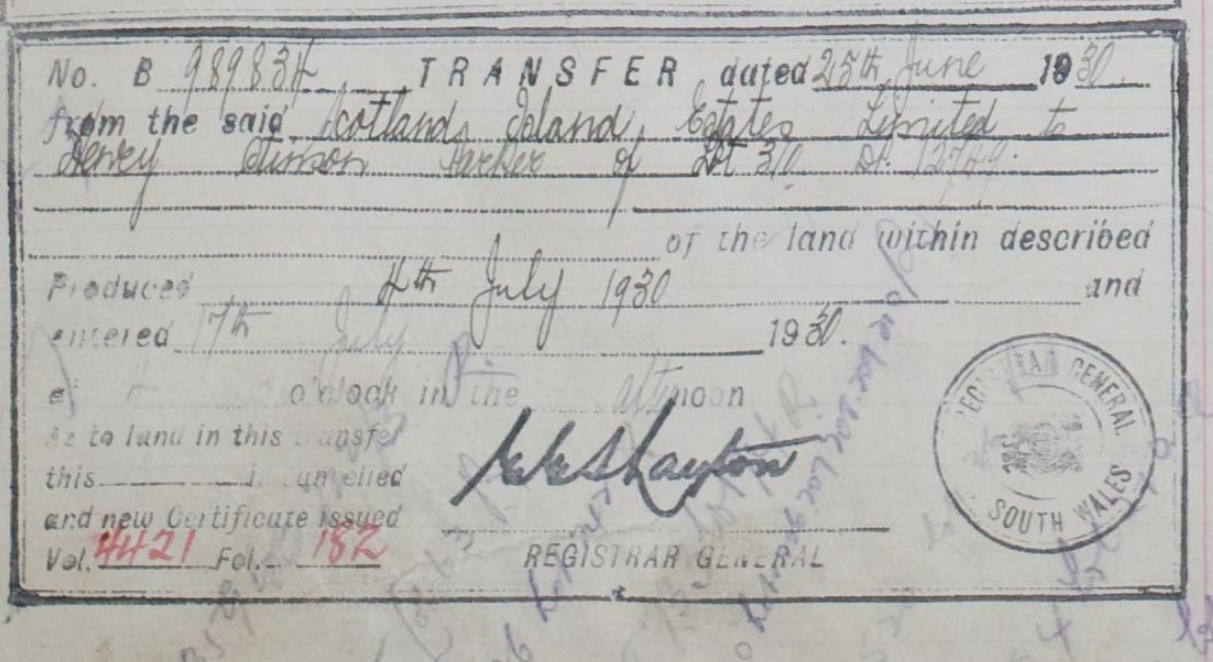 No. B 989834 TRANSFER dated 25th June 1930.
from the said Scotland Island Estates Limited to
Henry Parker of Lot 310 D.P. 12749.
of the land within described
Produced 4th July 1930 and
entered 17th July 1930.
at 4 o'clock in the afternoon
As to land in this transfer
this is cancelled
and new Certificate issued
Vol. 4421 Fol. 182
REGISTRAR GENERAL
REGISTRAR GENERAL
SOUTH WALES